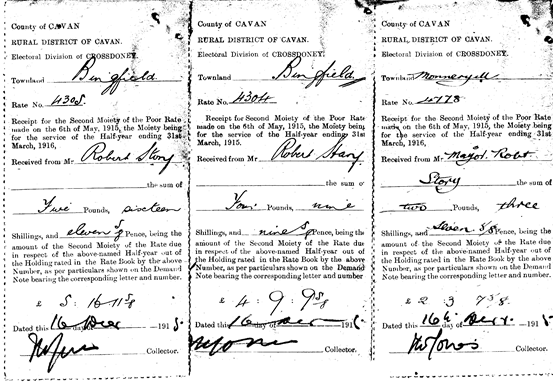 County of CAVAN
RURAL DISTRICT OF CAVAN.
Electoral Division of CROSSDONEY.
Townland Bingfield
Rate No. 4305
Receipt for the Second Moiety of the Poor Rate
made on the 6th of May, 1915, the Moiety being
for the service of the Half-year ending 31st
March, 1916,
Received from Mr Robert Story
the sum of
Five Pounds, sixteen
Shillings, and eleven 5/8 Pence, being the
amount of the Second Moiety of the Rate due
in respect of the above-named Half-year out of
the Holding rated in the Rate Book by the above
Number, as per particulars shown on the Demand
Note bearing the corresponding letter and number
£ 5 16 11 5/8
Dated this 16 day of Decr 1915
Collector.
County of CAVAN
RURAL DISTRICT OF CAVAN.
Electoral Division of CROSSDONEY.
Townland Bingfield
Rate No. 4304
Receipt for the Second Moiety of the Poor Rate
made on the 6th of May, 1915, the Moiety being
for the service of the Half-year ending 31st
March, 1915.
Received from Mr Robert Story
the sum of
Four Pounds, nine
Shillings, and nine 5/8 Pence, being the
amount of the Second Moiety of the Rate due
in respect of the above-named Half-year out of
the Holding rated in the Rate Book by the above
Number, as per particulars shown on the Demand
Note bearing the corresponding letter and number
£ 4 . 9 . 9 5/8
Dated this 16 day of Decr 1915
Collector.
County of CAVAN
RURAL DISTRICT OF CAVAN.
Electoral Division of CROSSDONEY.
Townland
Rate No. 4778
Receipt for the Second Moiety of the Poor Rate
made on the 6th of May, 1915, the Moiety being
for the service of the Half-year ending 31st
March, 1916,
Received from Mr Major Robt
Story
the sum of
two Pounds, three
Shillings, and seven 5/8 Pence, being the
amount of the Second Moiety of the Rate due
in respect of the above-named Half-year out of
the Holding rated in the Rate Book by the above
Number, as per particulars shown on the Demand
Note bearing the corresponding letter and number
£ 2 3 7 5/8
Dated this 16th day of Decr. 1915
Collector.